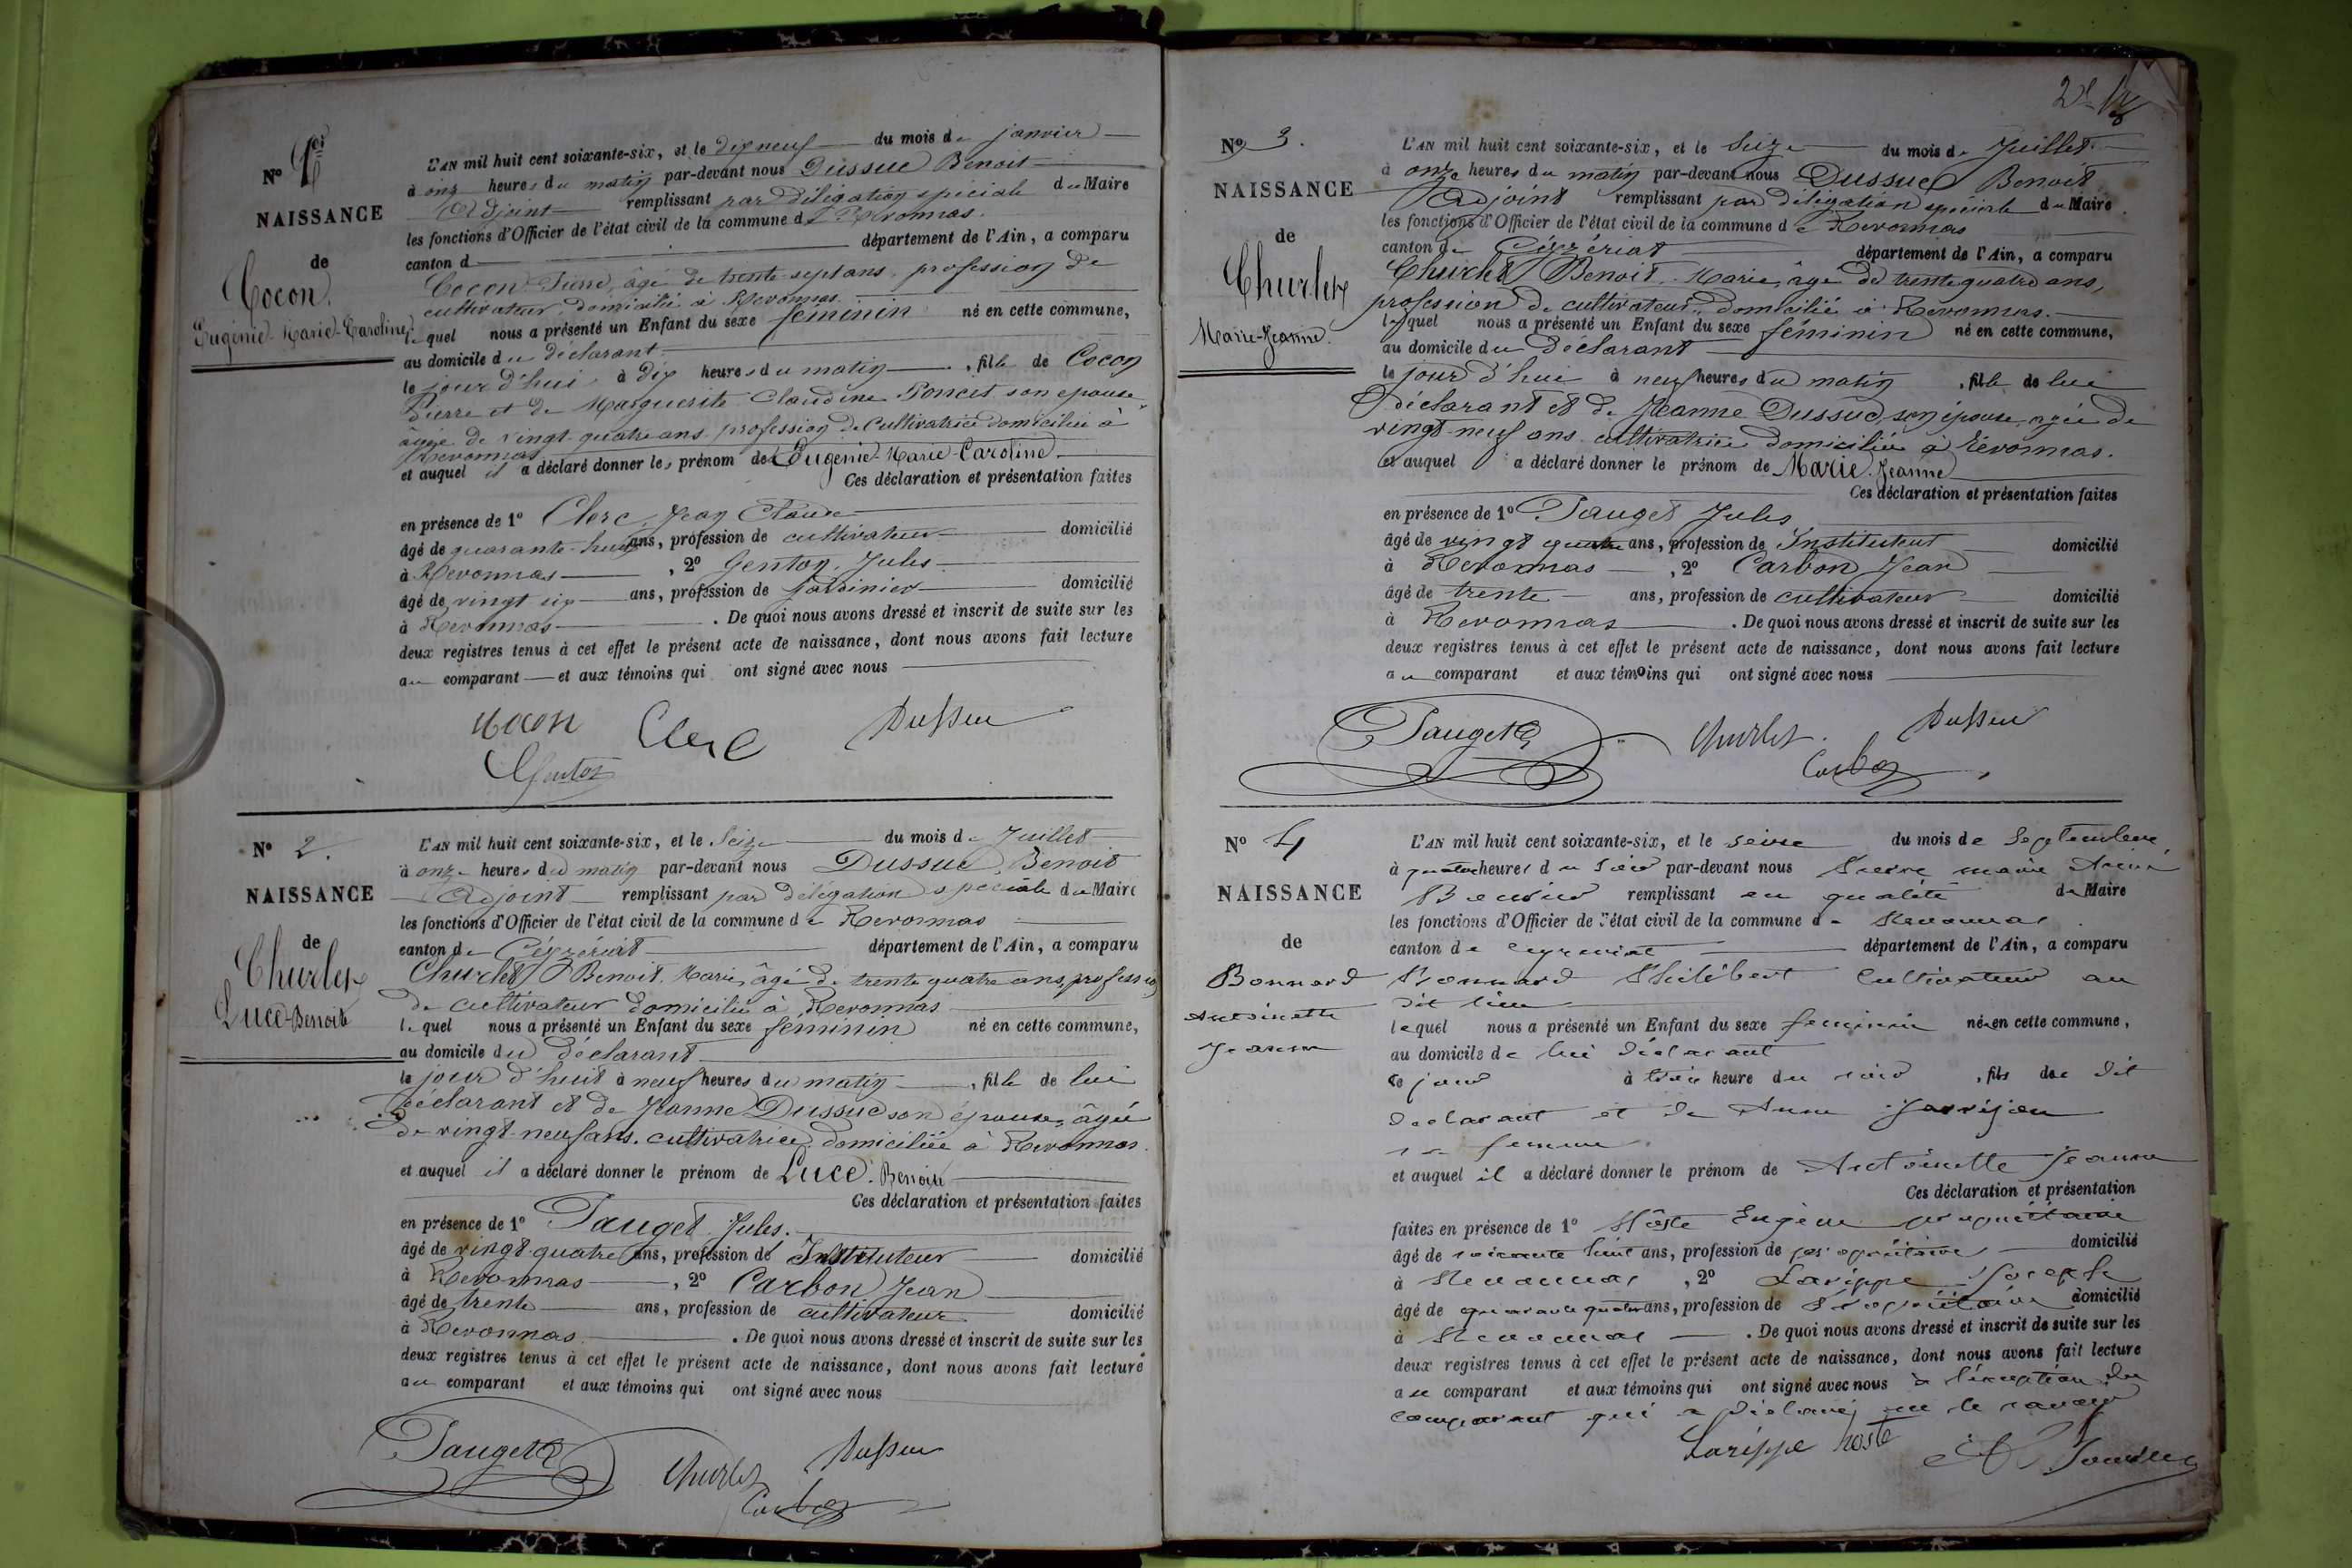 N° 1er
NAISSANCE
de
Cocon
Eugénie-Marie-Caroline
L'AN mil huit cent soixante-six, et le dix neuf du mois de janvier
à onze heures du matin par-devant nous Dussuc Benoit
Adjoint remplissant par délégation spéciale du Maire
les fonctions d'Officier de l'état civil de la commune de Revonnas.
canton d département de l'Ain, a comparu
Cocon Pierre, âgé de trente sept ans, profession de
cultivateur, domicilié à Revonnas.
lequel nous a présenté un Enfant du sexe féminin né en cette commune,
au domicile du déclarant
le jour d'hui à dix heures du matin, fille de Cocon
Pierre et de Marguerite Claudine Poncet son epouse
âgée de vingt-quatre ans profession de cultivatrice domiciliée à
Revonnas
et auquel il a déclaré donner les prénom de Eugénie-Marie-Caroline
Ces déclaration et présentation faites
en présence de 1° Clerc, Jean Claude
âgé de quarante-huit ans, profession de cultivateur domicilié
à Revonnas, 2° Genton, Jules
âgé de vingt six ans, profession de jardinier domicilié
à Revonnas. De quoi nous avons dressé et inscrit de suite sur les
deux registres tenus à cet effet le présent acte de naissance, dont nous avons fait lecture
au comparant et aux témoins qui ont signé avec nous
Cocon Clerc Dussuc
Genton
N° 2.
NAISSANCE
de
Churlet
Luce-Benoite
L'AN mil huit cent soixante-six, et le Seize du mois de Juillet
à onze heures du matin par-devant nous Dussuc, Benoit
Adjoint remplissant par délégation spéciale du Maire
les fonctions d'Officier de l'état civil de la commune de Revonnas
canton de Ceyzériat département de l'Ain, a comparu
Churlet Benoit, Marie, âgé de trente quatre ans, profession
de cultivateur domicilié à Revonnas
lequel nous a présenté un Enfant du sexe féminin né en cette commune,
au domicile du déclarant
le jour d'huit à neuf heures du matin, fille de lui
déclarant et de Jeanne Dussuc son épouse, âgée
de vingt-neuf ans. cultivatrice domiciliée à Revonnas.
et auquel il a déclaré donner le prénom de Luce. Benoite
Ces déclaration et présentation faites
en présence de 1° Pauget, Jules.
âgé de vingt-quatre ans, profession de Instituteur domicilié
à Revonnas, 2° Carbon Jean
âgé de trente ans, profession de cultivateur domicilié
à Revonnas. De quoi nous avons dressé et inscrit de suite sur les
deux registres tenus à cet effet le présent acte de naissance, dont nous avons fait lecture
au comparant et aux témoins qui ont signé avec nous
Pauget Churlet Dussuc
Carbon
N° 3.
NAISSANCE
de
Churlet
Marie-Jeanne.
L'AN mil huit cent soixante-six, et le Seize du mois de Juillet
à onze heures du matin par-devant nous Dussuc Benoit
Adjoint remplissant par délégation spéciale du Maire
les fonctions d'Officier de l'état civil de la commune de Revonnas
canton de Ceyzériat département de l'Ain, a comparu
Churlet Benoit, Marie, âgé de trente quatre ans,
profession de cultivateur, domicilié à Revonnas.
lequel nous a présenté un Enfant du sexe féminin né en cette commune,
au domicile du déclarant
le jour d'hui à neuf heures du matin, fille de lui
déclarant et de Jeanne Dussuc, son épouse, agée de
vingt-neuf ans cultivatrice domiciliée à Révonnas.
et auquel a déclaré donner le prénom de Marie. Jeanne
Ces déclaration et présentation faites
en présence de 1° Pauget Jules
âgé de vingt quatre ans, profession de Instituteur domicilié
à Revonnas, 2° Carbon Jean
âgé de trente ans, profession de cultivateur domicilié
à Revonnas. De quoi nous avons dressé et inscrit de suite sur les
deux registres tenus à cet effet le présent acte de naissance, dont nous avons fait lecture
au comparant et aux témoins qui ont signé avec nous
Pauget Churlet Dussuc
Carbon
N° 4
NAISSANCE
de
Bonnard
Antoinette
Jeanne
L'AN mil huit cent soixante-six, et le seize du mois de Septembre
à quatre heures du soir par-devant nous Pierre marie
remplissant en qualité de Maire
les fonctions d'Officier de l'état civil de la commune de Revonnas
canton de Ceyzeriat département de l'Ain, a comparu
Bonnard Philibert Cultivateur au
dit lieu
lequel nous a présenté un Enfant du sexe feminin née en cette commune,
au domicile de lui déclarant
ce jour à trois heure du soir, fils de dit
declarant et de Anne
sa femme
et auquel il a déclaré donner le prénom de Antoinette Jeanne
Ces déclaration et présentation
faites en présence de 1° Hoste Eugène propriétaire
âgé de soixante huit ans, profession de propriétaire domicilié
à Revonnas, 2° Larippe Joseph
âgé de quarante quatre ans, profession de Propriétaire domicilié
à Revonnas. De quoi nous avons dressé et inscrit de suite sur les
deux registres tenus à cet effet le présent acte de naissance, dont nous avons fait lecture
au comparant et aux témoins qui ont signé avec nous à l'exception du
comparant qui a déclaré ne le savoir
Larippe hoste